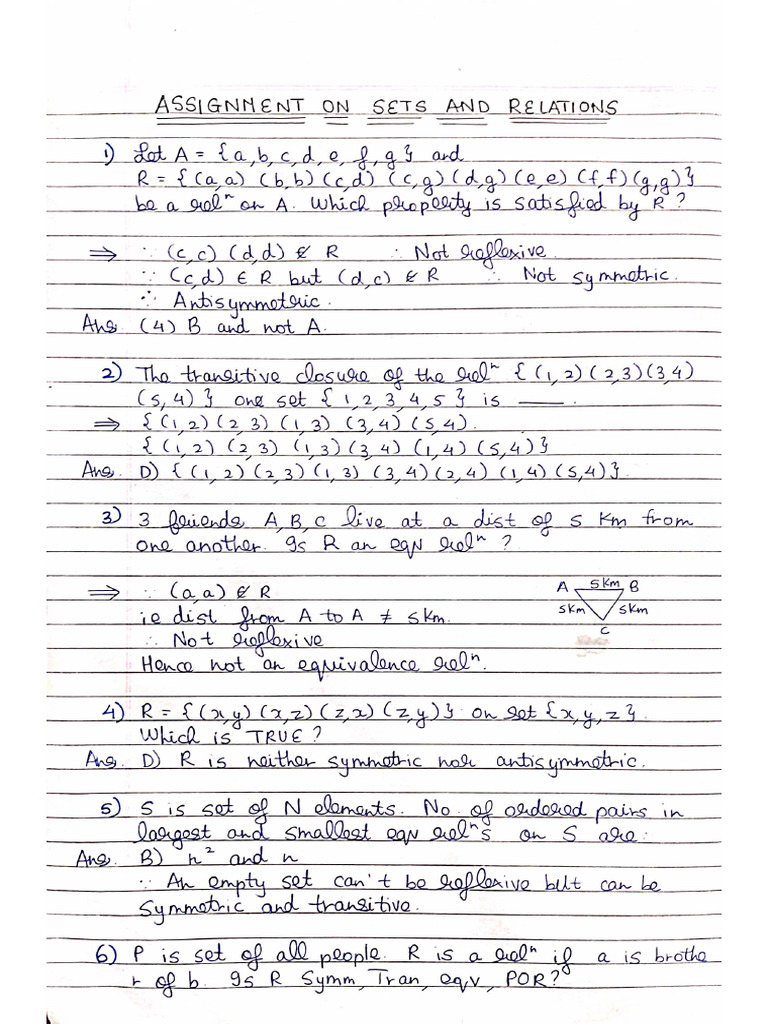 ASSIGNMENT ON SETS AND RELATIONS
1) Let A = {a,b,c,d,e,f,g} and
R = {(a,a) (b,b) (c,d) (c,g) (d,g) (e,e) (f,f) (g,g)}
be a relⁿ on A. Which property is satisfied by R?
⇒ ∵ (c,c) (d,d) ∉ R ∴ Not reflexive.
∵ (c,d) ∈ R but (d,c) ∉ R ∴ Not symmetric.
∴ Antisymmetric.
Ans. (4) B and not A.
2) The transitive closure of the relⁿ {(1,2) (2,3) (3,4)
(5,4)} one set {1,2,3,4,5} is ___.
⇒ {(1,2) (2,3) (1,3) (3,4) (5,4).
{(1,2) (2,3) (1,3) (3,4) (1,4) (5,4)}
Ans. D) {(1,2) (2,3) (1,3) (3,4) (2,4) (1,4) (5,4)}.
3) 3 friends A, B, C live at a dist of 5 Km from
one another. Is R an eqv relⁿ?
⇒ ∵ (a,a) ∉ R
A 5Km B
ie dist from A to A ≠ 5Km.
5Km 5Km
C
∴ Not reflexive
Hence not an equivalence relⁿ.
4) R = {(x,y) (x,z) (z,x) (z,y)} on set {x,y,z}.
Which is TRUE?
Ans. D) R is neither symmetric nor antisymmetric.
5) S is set of N elements. No. of ordered pairs in
largest and smallest eqv relⁿs on S are:
Ans. B) n² and n
∵ An empty set can't be reflexive but can be
symmetric and transitive.
6) P is set of all people. R is a relⁿ if a is brothe
r of b. Is R Symm, Tran, eqv, POR?